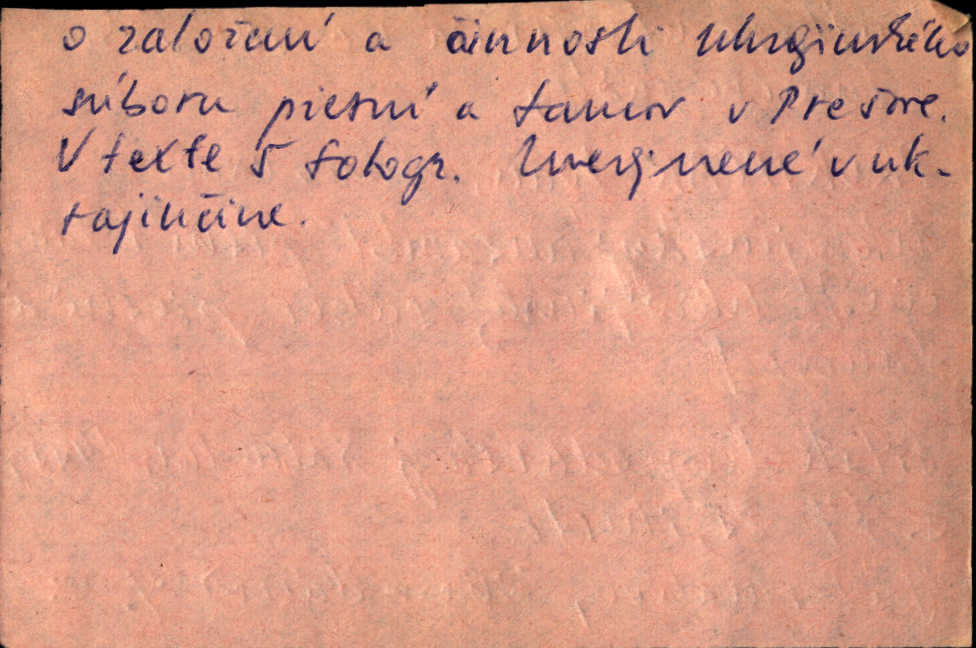 o založení a činnosti Ukrajinského
súboru piesní a tancov v Prešove.
V texte 5 fotogr. Uverejnené v uk-
rajinčine.